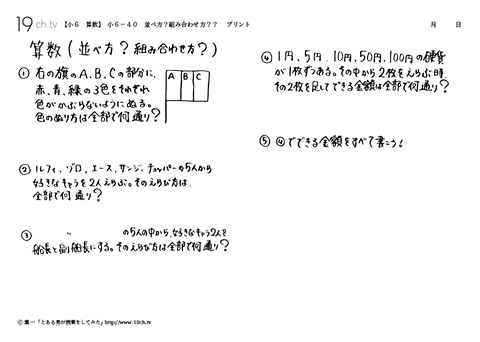 19ch.tv 【小6 算数】 小6-40 並べ方?組み合わせ方?? プリント 月 日
算数(並べ方?組み合わせ方?)
① 右の旗のA、B、Cの部分に、
赤、青、緑の3色をそれぞれ
色がかぶらないようにぬる。
色のぬり方は全部で何通り?
A B C
② ルフィ、ゾロ、エース、サンジ、チョッパーの5人から
好きなキャラを2人えらぶ。そのえらび方は
全部で何通り?
③ 〃 の5人の中から、好きなキャラ2人を
船長と副船長にする。そのえらび方は全部で何通り?
④ 1円、5円、10円、50円、100円の硬貨
が1枚ずつある。その中から2枚をえらぶ時、
その2枚を足してできる金額は全部で何通り?
⑤ ④でできる金額をすべて書こう!
© 葉一「とある男が授業をしてみた」http://www.19ch.tv